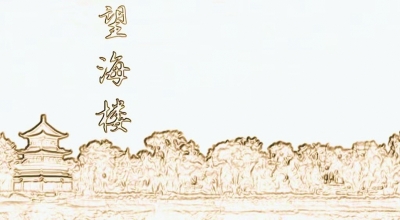 望海楼